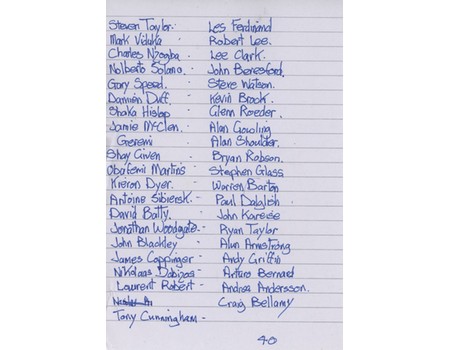 Steven Taylor. Les Ferdinand
Mark Viduka - Robert Lee.
Charles N'Zogbia - Lee Clark.
Nolberto Solano. - John Beresford.
Gary Speed. - Steve Watson.
Damien Duff. - Kevin Brock.
Shaka Hislop - Glenn Roeder.
Jamie McClen. - Alan Gowling
Geremi - Alan Shoulder.
Shay Given - Bryan Robson.
Obafemi Martins - Stephen Glass
Kieron Dyer. - Warren Barton
Antoine Sibierski. - Paul Dalglish.
David Batty. - John Karelse
Jonathan Woodgate - Ryan Taylor
John Blackley - Alun Armstrong
James Coppinger - Andy Griffin
Nikolaos Dabizas - Arturo Bernard
Laurent Robert - Andreas Andersson.
Craig Bellamy
Tony Cunningham -
40